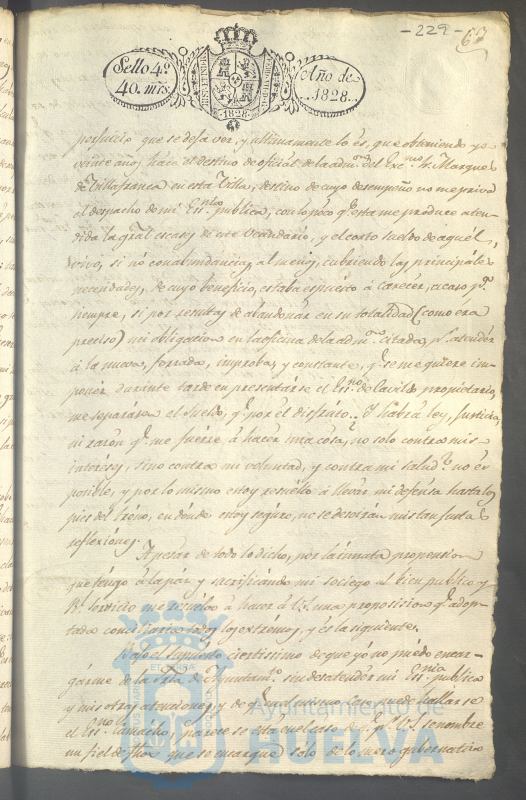 - 229 -
67
Sello 4º
40. mrs.
Año de
1828.
HISPANIARUM
1828
perjuicio que se deja ver, y ultimamente lo es, que obteniendo yo
veinte años hace el destino de oficial de la admon. del Exmo. Sr. Marques
de Villafranca en esta Villa, destino de cuyo desempeño no me priva
el despacho de mi Esnia. publica, con lo poco qe. esta me produce aten-
dida la gral escasez de este Vecindario, y el corto sueldo de aquél,
vivo, si no con abundancia, al menos, cubriendo las principales
necesidades, de cuyo beneficio, estaba espuesto á carecer, acaso pa.
siempre, si por resultas de abandonar en su totalidad (como era
preciso) mi obligacion en la oficina de la admon. citada, pr. atender
á la nueva, forzada, improba, y constante, qe. se me quiere im-
poner durante tarde en presentarse el Esno. de Cavildo propietario,
me separára el sueldo, qe. por él disfruto. ¿Y habrá ley, justicia,
ni razón qe. me fuerze á hacer una cosa, no solo contra mis
intereses, sino contra mi voluntad, y contra mi salud? no es
posible, y por lo mismo estoy resuelto á llevar mi defensa hasta los
pies del trono, en donde estoy seguro, no se desoirán mis tan justas
reflexiones.
A pesar de todo lo dicho, por la innata propension
que tengo á la paz y sacrificando mi sociego al bien publico y
Rl. servicio me resuelvo á hacer á V.S. una proposicion qe. adop-
tada conciliaria todos los extremos, y es la siguiente.
Bajo el supuesto ciertisimo de que yo no puedo encar-
gárme de la Sria. de Ayuntamto. sin desatender mi Esnia. publica
y mis otras atenciones, y de qe. en el mismo caso puede hallarse
el Esno. Camacho, parece se está en el caso de qe. pr. V.S. se nombre
un fiel de fhos que se encargue solo de lo mero gubernativo
Ayuntamiento de
HUELVA